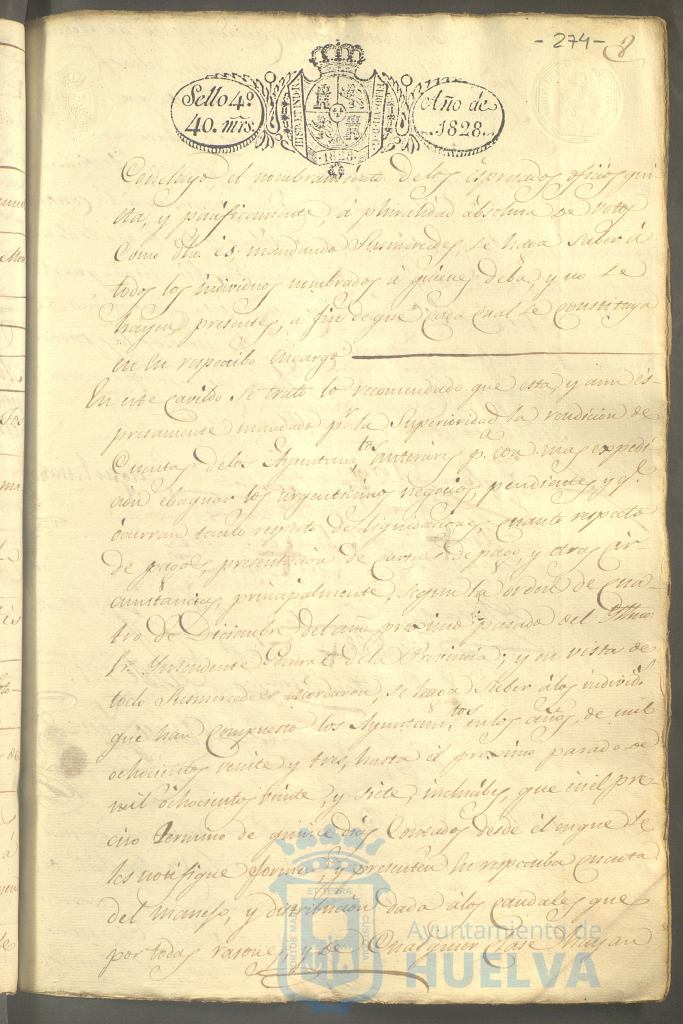 - 274 -
8
Sello 4º
40. mrs.
HISP. ET IND. R.
1828
Año de
1828.
Concluyo el nombramiento de los espresados oficios quie-
ta, y pacificamente, á pluralidad absoluta de votos
como dho. es, mandando Susmercedes, se haga saber á
todos los individuos nombrados á quienes deba, y no se
hayen presentes, a fin de que cada cual se constituya
en su respectibo encargo
En este Cavildo se trató lo recomendado que esta, y aun es-
presamente mandado pr. la Superioridad la rendicion de
Cuentas delos Ayuntamtos. anteriores pa. con mas expedi-
cion ebaquar los urgentisimos negocios pendientes y qe.
ocurran tanto respecto de liquidaciones, cuanto respecto
de pagos, presentacion de cartas de pago y otras cir-
cunstancias, principalmente, segun la orden de cua-
tro de Diciembre del año procsimo pasado del Yllmo
Sr. Yntendente Gneral de la Provincia; y en vista de
todo Susmercedes acordaron, se haga saber á los individs.
que han compuesto los Ayuntamtos. en los años de mil
ochocientos veinte y tres, hasta el procsimo pasado de
mil ochocientos veinte, y siete, inclusibes, que en el pre-
ciso termino de quince dias Contados desde el en que se
les notifique formen y presenten su respectiba cuenta
del manejo, y distribucion dada á los caudales que
por todas rasones y de Cualquier Clase hayan
PORTUS MARIS ET TERRÆ CUSTODIA
Ayuntamiento de
HUELVA